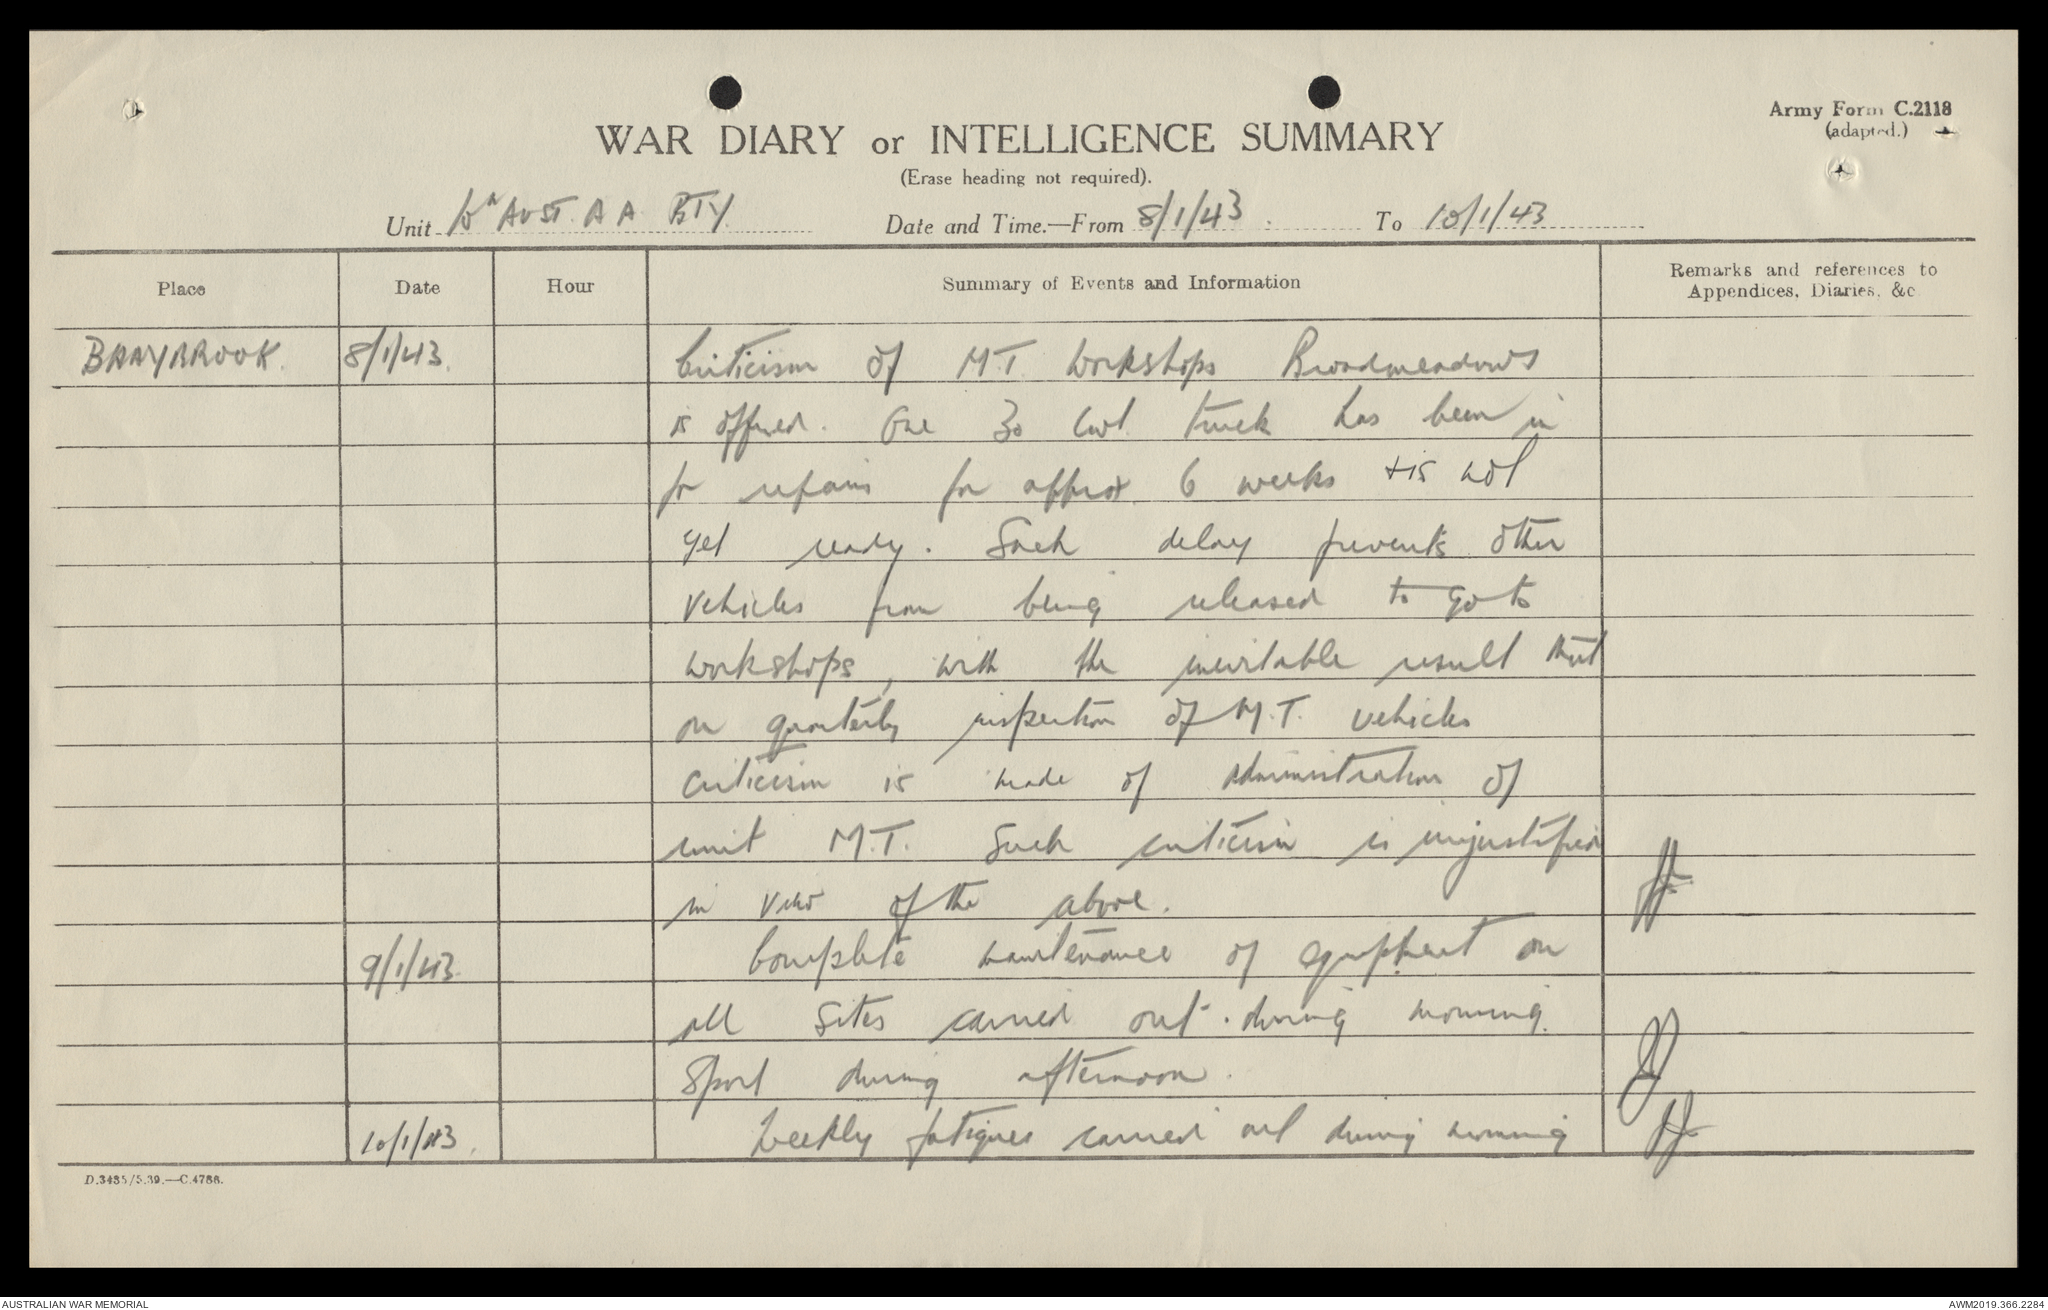 Army Form C.2118
(adapted.)
WAR DIARY or INTELLIGENCE SUMMARY
(Erase heading not required).
Unit AUST. A A BTY. Date and Time.—From 8/1/43. To 10/1/43
Place Date Hour Summary of Events and Information Remarks and references to Appendices, Diaries, &c
BRAYBROOK. 8/1/43. Criticism of M.T. Workshops Broadmeadows
is offered. One 30 Cwt. truck has been in
for repairs for approx 6 weeks + is not
yet ready. Such delay prevents other
vehicles from being released to go to
workshops, with the inevitable result that
on quarterly inspection of M.T. vehicles
criticism is made of administration of
unit M.T. Such criticism is unjustified
in view of the above.
9/1/43. Complete maintenance of equipment on
all sites carried out during morning.
Sport during afternoon.
10/1/43. Weekly fatigues carried out during morning
D.3435/5.39.—C.4786.
AUSTRALIAN WAR MEMORIAL
AWM2019.366.2284